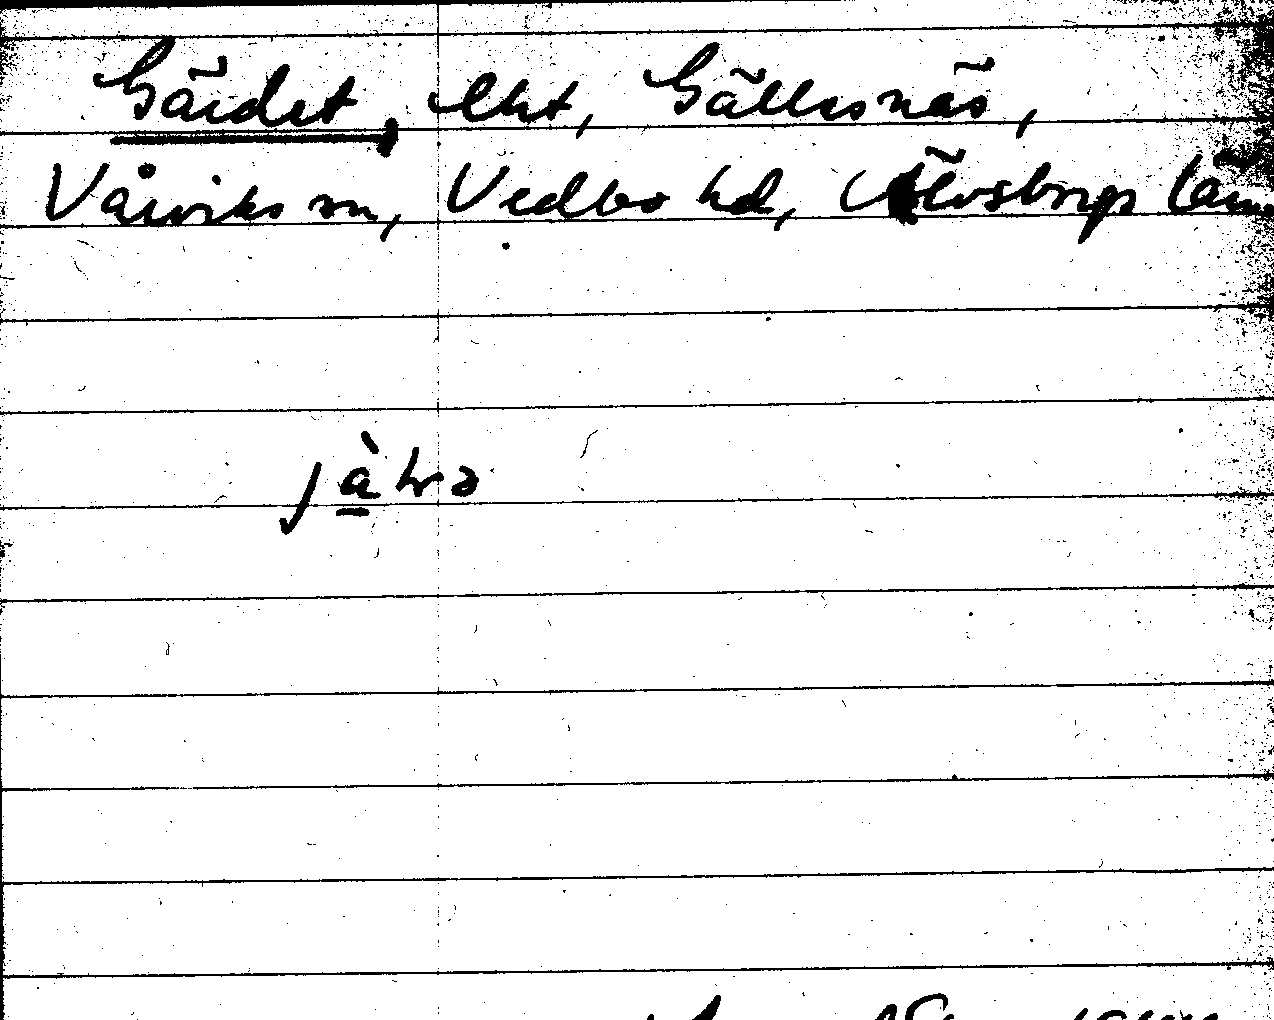 Gärdet, lht, Gällesnäs,
Vårviks sn, Vedbo hd, Älvsborgs län.